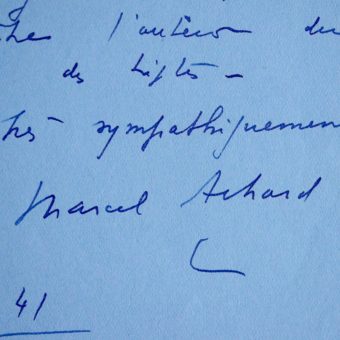 l'auteur du
des
très sympathiquement
Marcel Achard
41